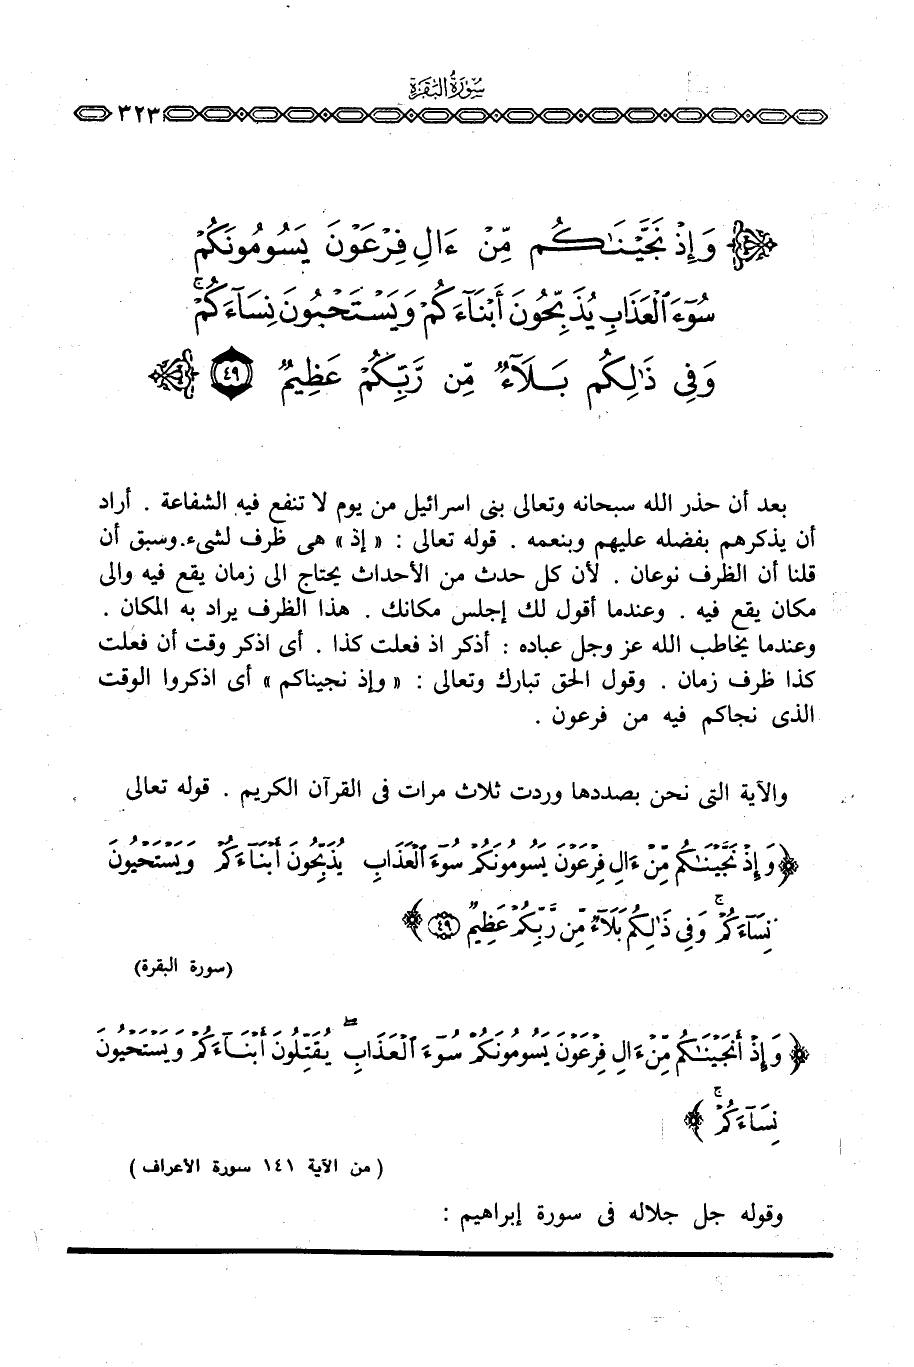 سُورَةُ البَقَرَةِ
٣٢٣
وَإِذْ نَجَّيْنَاكُم مِّنْ ءَالِ فِرْعَوْنَ يَسُومُونَكُمْ
سُوٓءَ ٱلْعَذَابِ يُذَبِّحُونَ أَبْنَآءَكُمْ وَيَسْتَحْيُونَ نِسَآءَكُمْ ۚ
وَفِى ذَٰلِكُم بَلَآءٌ مِّن رَّبِّكُمْ عَظِيمٌ ٤٩
بعد أن حذر الله سبحانه وتعالى بنى اسرائيل من يوم لا تنفع فيه الشفاعة . أراد
أن يذكرهم بفضله عليهم وبنعمه . قوله تعالى : « إذ » هى ظرف لشىء . وسبق أن
قلنا أن الظرف نوعان . لأن كل حدث من الأحداث يحتاج الى زمان يقع فيه والى
مكان يقع فيه . وعندما أقول لك إجلس مكانك . هذا الظرف يراد به المكان .
وعندما يخاطب الله عز وجل عباده : أذكر اذ فعلت كذا . أى اذكر وقت أن فعلت
كذا ظرف زمان . وقول الحق تبارك وتعالى : « وإذ نجيناكم » أى اذكروا الوقت
الذى نجاكم فيه من فرعون .
والآية التى نحن بصددها وردت ثلاث مرات فى القرآن الكريم . قوله تعالى
﴿ وَإِذْ نَجَّيْنَٰكُم مِّنْ ءَالِ فِرْعَوْنَ يَسُومُونَكُمْ سُوٓءَ ٱلْعَذَابِ يُذَبِّحُونَ أَبْنَآءَكُمْ وَيَسْتَحْيُونَ
نِسَآءَكُمْ ۚ وَفِى ذَٰلِكُم بَلَآءٌ مِّن رَّبِّكُمْ عَظِيمٌ ٤٩ ﴾
(سورة البقرة)
﴿ وَإِذْ أَنجَيْنَٰكُم مِّنْ ءَالِ فِرْعَوْنَ يَسُومُونَكُمْ سُوٓءَ ٱلْعَذَابِ ۖ يُقَتِّلُونَ أَبْنَآءَكُمْ وَيَسْتَحْيُونَ
نِسَآءَكُمْ ۚ ﴾
( من الآية ١٤١ سورة الأعراف )
وقوله جل جلاله فى سورة إبراهيم :